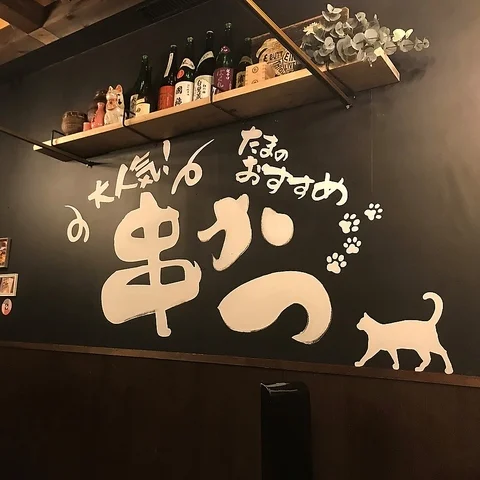 大人気!
たまの
おすすめ
串かつ